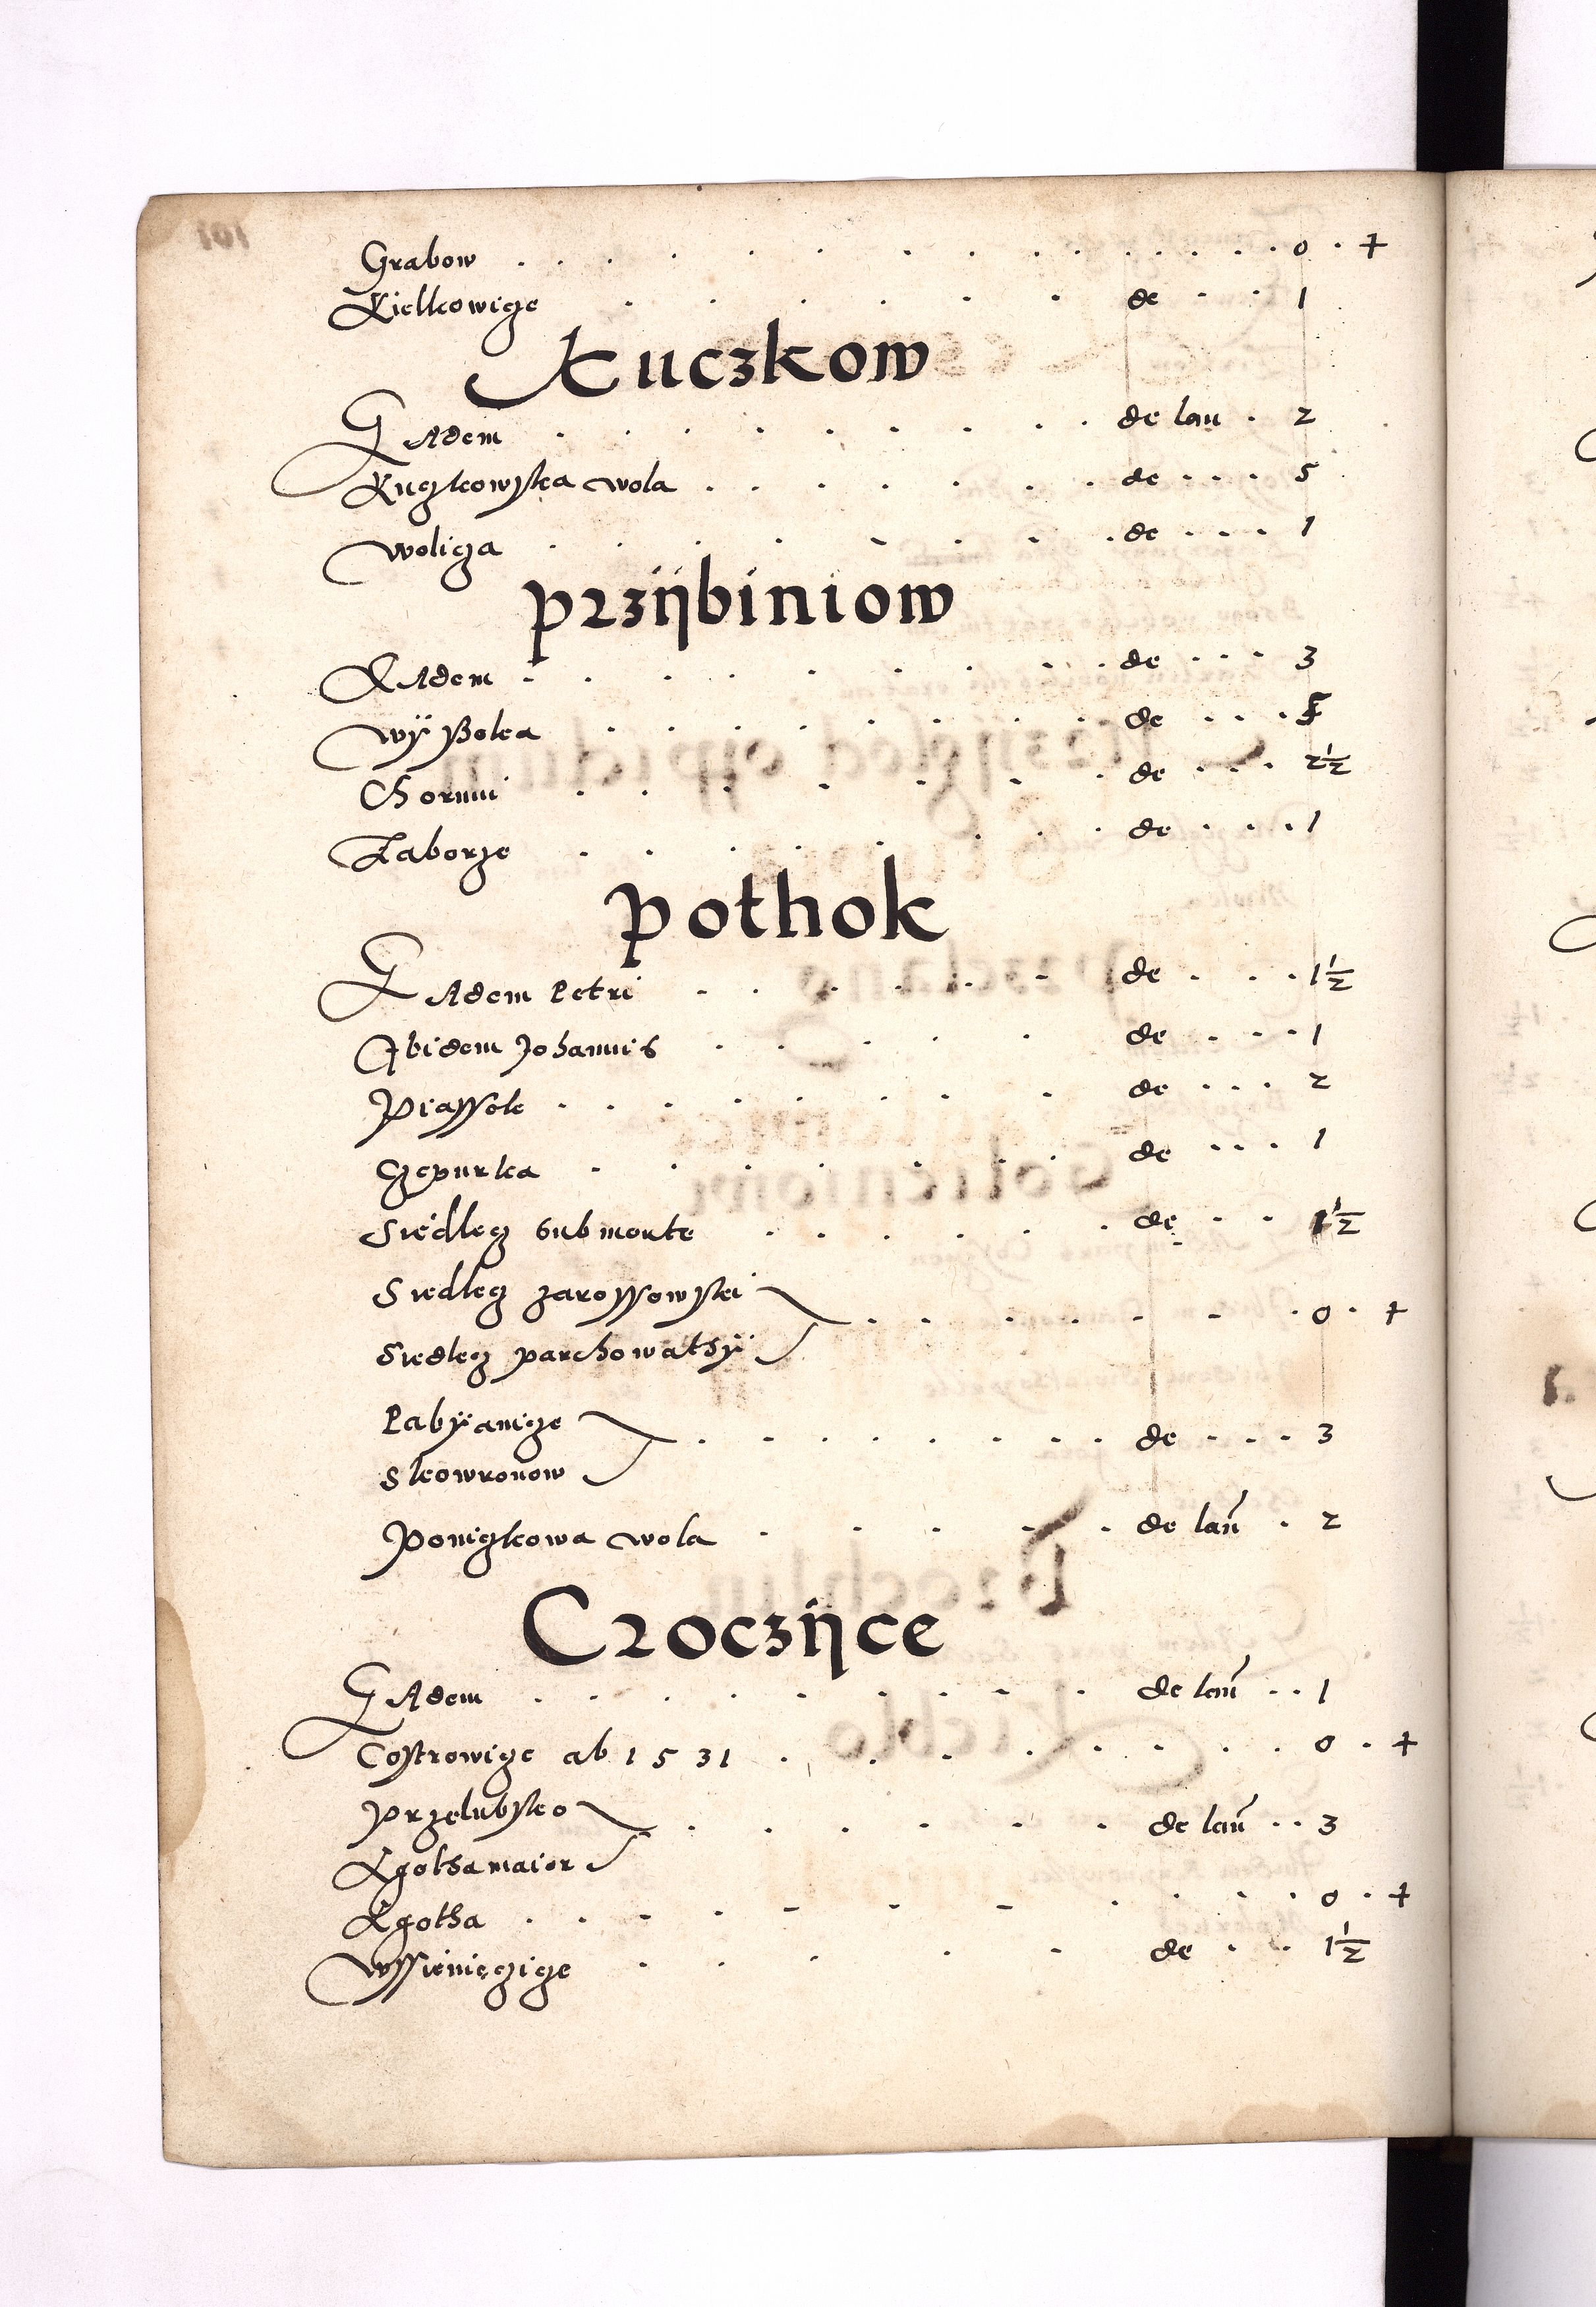 Grabow . . . . . . . . . . . . . 0 . +
Kielkowicze . . . . . . de . . 1
Kuczkow
Eadem . . . . . . . . . de lan . 2
Kuczkowska wola . . . . . . . de . . . 5
Wolicza . . . . . . . de . . . 1
Przÿbiniow
Eadem . . . . . . . . . de . . . 3
Wÿssoka . . . . . . . . de . . .
Choruni . . . . . . . de . . . 2½
Zaborze . . . . . . . . de . . . 1
Pothok
Eadem Petri . . . . . . de . . . 1½
Ibidem Johannis . . . . . de . . . 1
Piassek . . . . . . . . de . . . 2
Czepurka . . . . . . . de . . . 1
Siedlecz sub monte . . . . . . de . . 1½
Siedlecz zarossowski . . . . . . . 0 . +
Siedlecz parchowathÿ
Pabÿanicze . . . . . . . . de . . . 3
Skowronow
Poniczkowa wola . . . . . de lan̄ . 2
Croczÿce
Eadem . . . . . . . . . de lan̄ . . 1
Costrowicze ab 1531 . . . . . . . . 0 . +
Przelubsko . . . . . . de lan̄ . . 3
Lgotha maior
Lgotha . . . . . . . . . . 0 . +
Wssieniczicze . . . . . de . . 1½